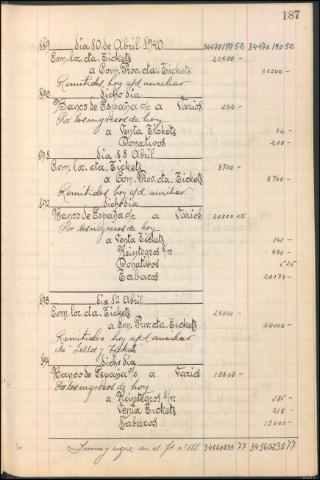 187
889 Día 10 de Abril 1940 34470190 52 34470190 52
Com. loc. cta. Tickets 22500 -
a Com. Prov. cta. Tickets 22500 -
Remitidos hoy s/d auxiliar
890 Dicho día
Banco de España c/c a Varios 242 -
Por los ingresos de hoy
a Venta Tickets 42 -
Donativos 200 -
891 Día 11 Abril
Com. loc. cta. Tickets 8700 -
a Com. Prov. cta. Tickets 8700 -
Remitidos hoy s/d auxiliar
892 Dicho día
Banco de España c/c a Varios 20800 25
Por los ingresos de hoy
a Venta Tickets 141 -
Reintegros s/r 480 -
Donativos 5 25
Tabacos 20174 -
893 Día 12 Abril
Com. loc. cta. Tickets 24000 -
a Com. Prov. cta. Tickets 24000 -
Remitidos hoy s/d auxiliar
de "Sellos y Tickets"
894 Dicho día
Banco de España c/c a Varios 13500 -
Por los ingresos de hoy
a Reintegros s/r
Venta Tickets 218 -
Tabacos 13000 -
Suma y sigue en el fº nº 188 34560235 77 34560235 77